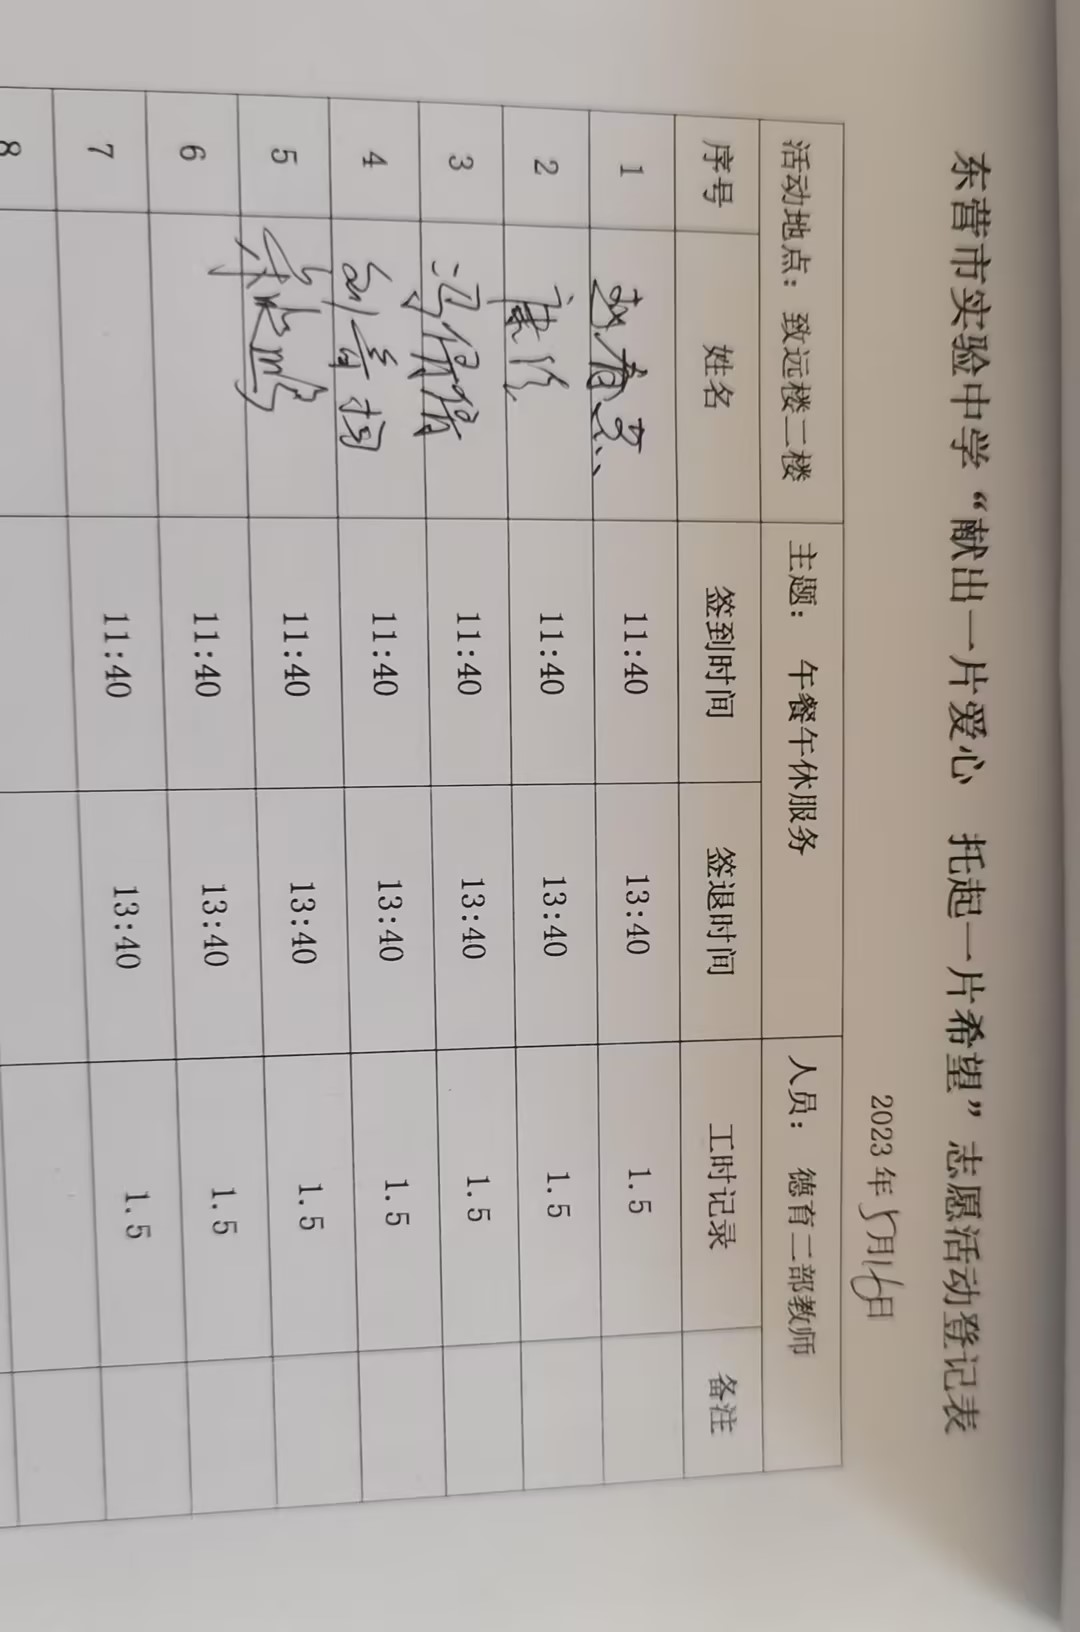 东营市实验中学“献出一片爱心 托起一片希望”志愿活动登记表
2023年5月16日
活动地点：致远楼二楼 主题： 午餐午休服务 人员： 德育二部教师
序号 姓名 签到时间 签退时间 工时记录 备注
1 11:40 13:40 1.5
2 11:40 13:40 1.5
3 冯倩倩 11:40 13:40 1.5
4 刘 11:40 13:40 1.5
5 11:40 13:40 1.5
6 11:40 13:40 1.5
7 11:40 13:40 1.5
8